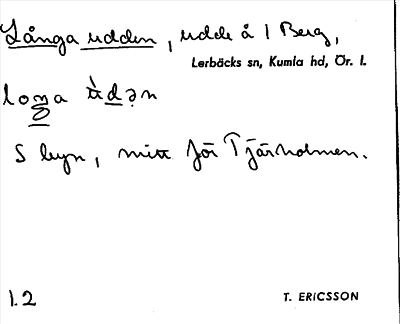 Långa udden, udde å 1 Berg,
Lerbäcks sn, Kumla hd, Ör. l.
S byn, mitt för Tjärholmen.
1.2
T. ERICSSON